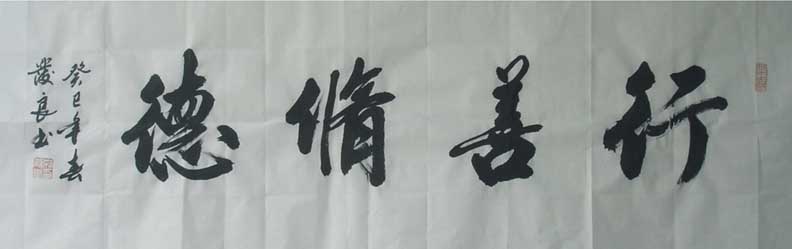 行善脩德
癸巳年春
發良书